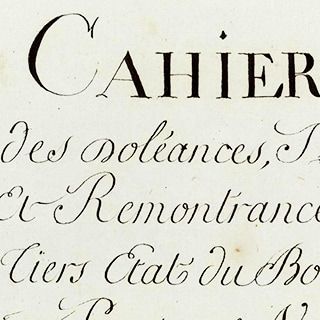 CAHIER
des Doléances,
Et Remontrance
Tiers Etat du Bo